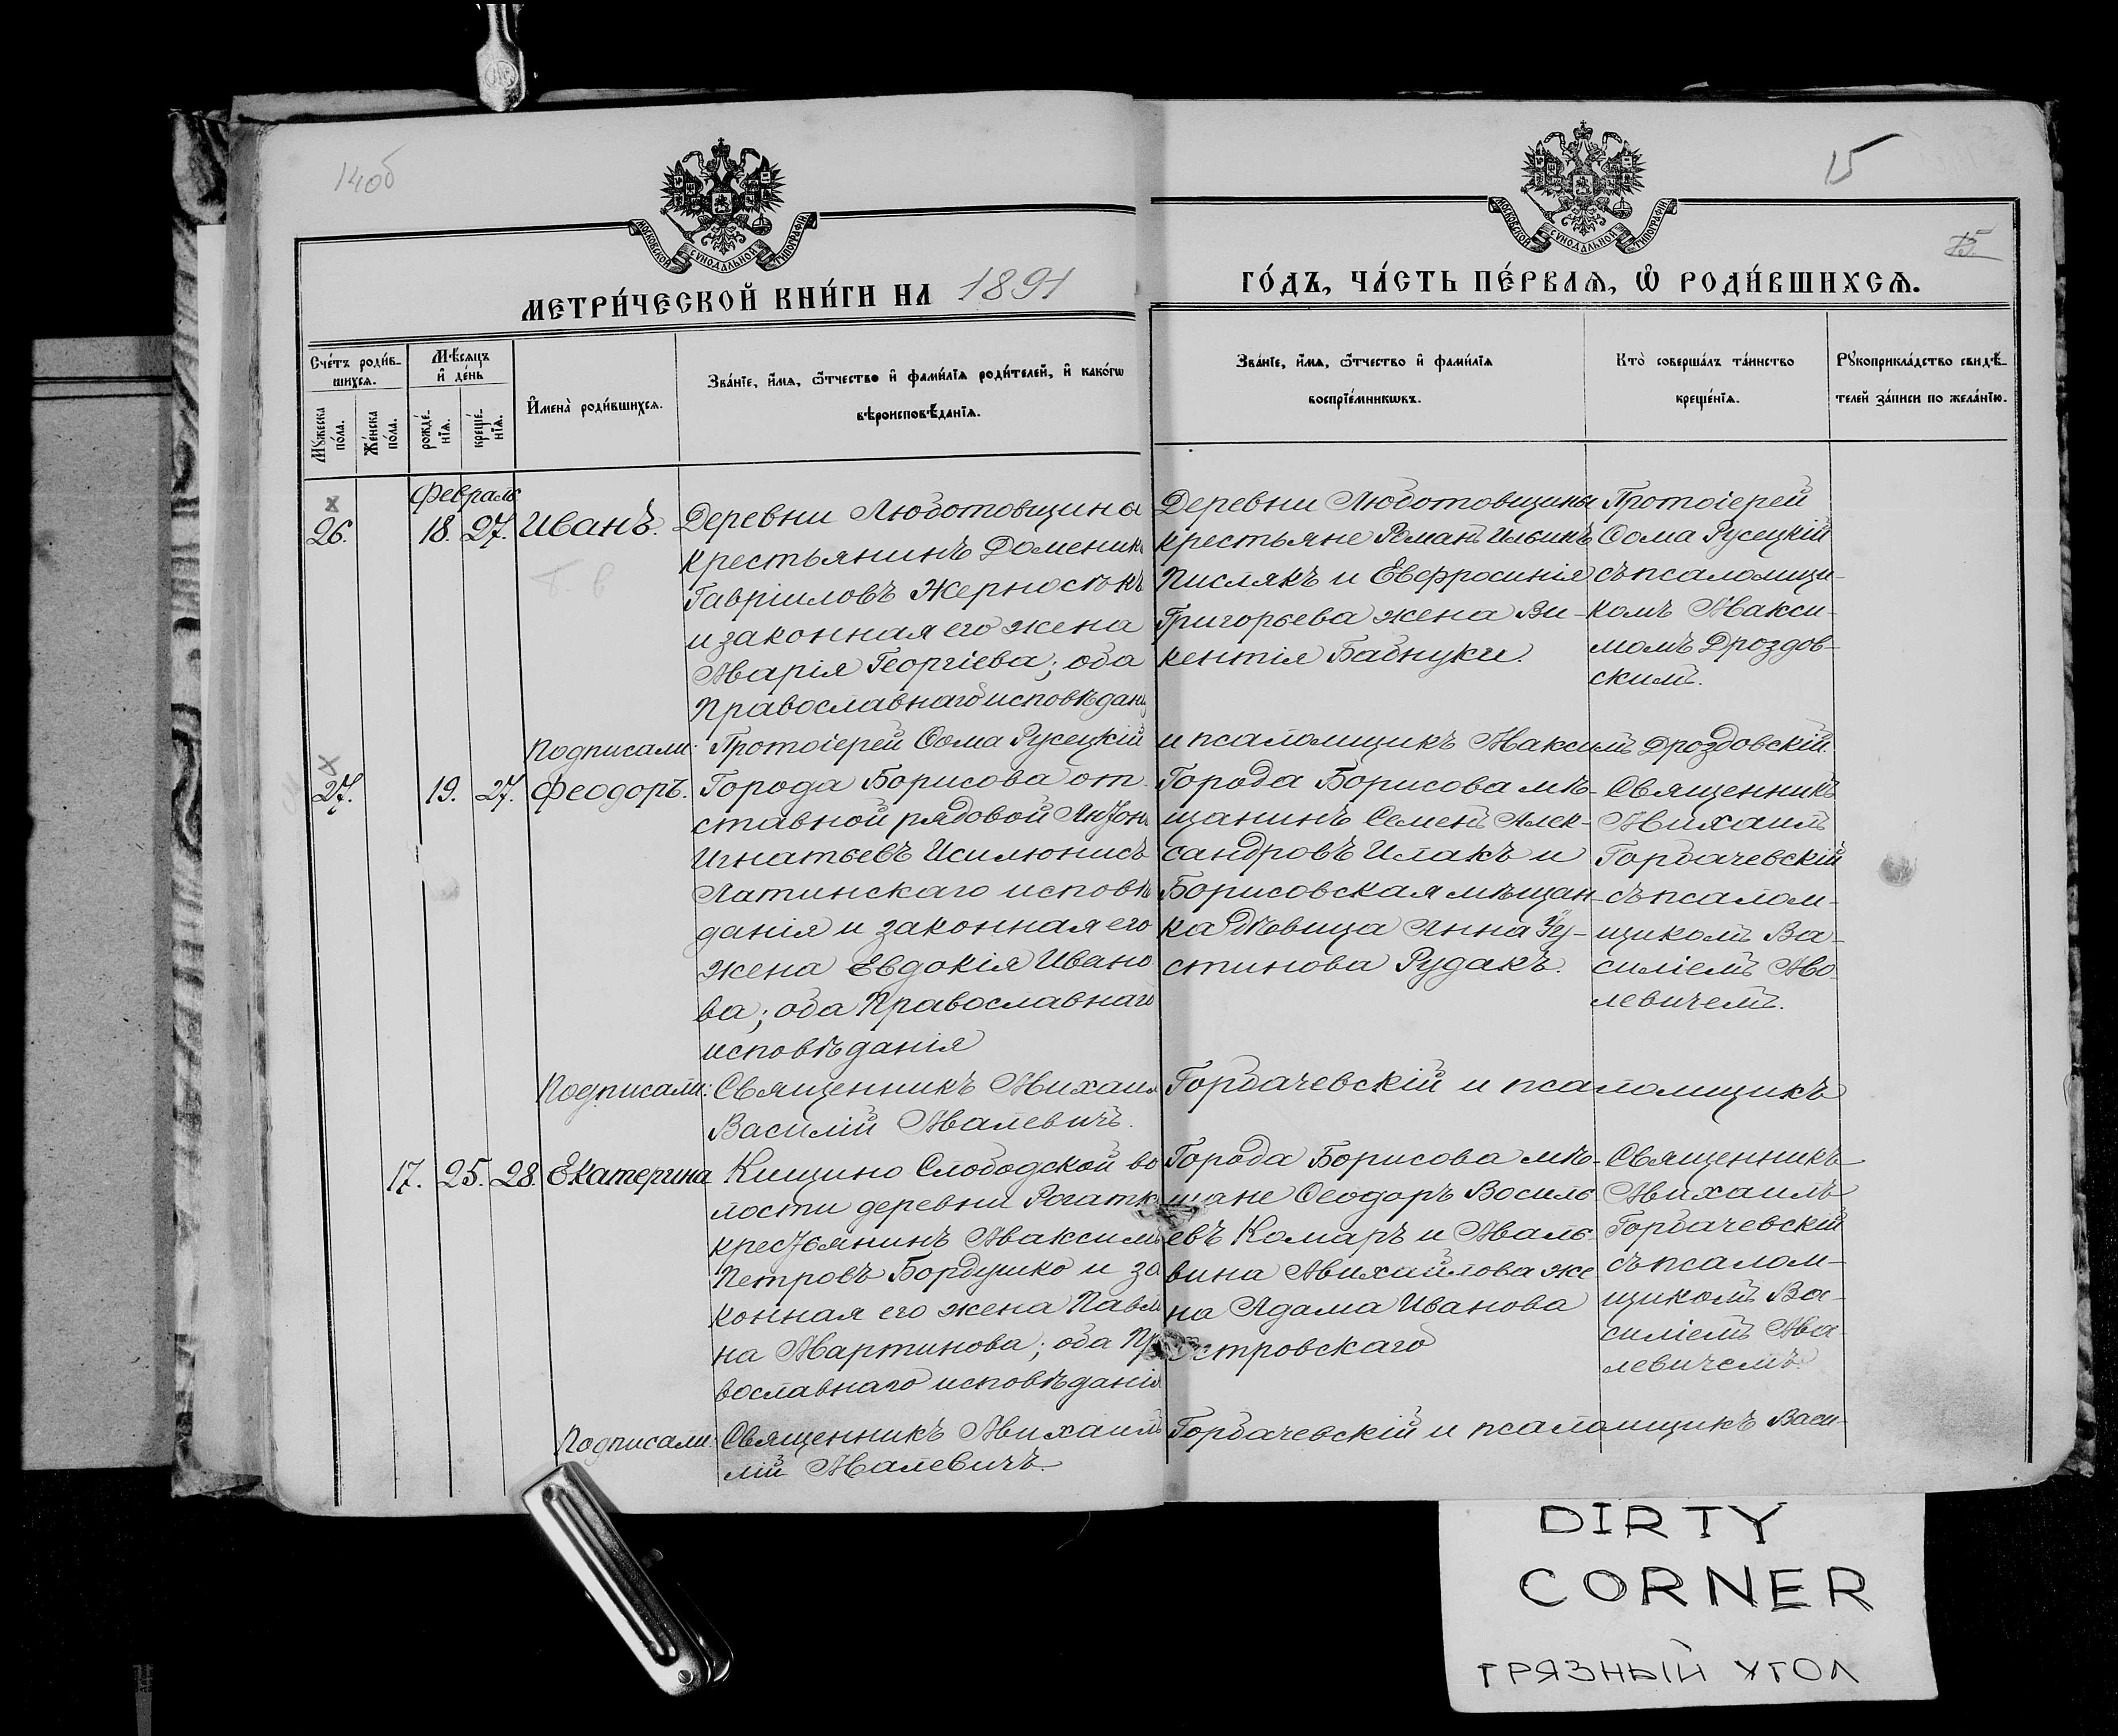 14об
15
15
МОСКОВСКОЙ СѴНОДАЛЬНОЙ ТИПОГРАФІИ
МОСКОВСКОЙ СѴНОДАЛЬНОЙ ТИПОГРАФІИ
МЕТРИ́ЧЕСКОЙ КНИ́ГИ НА 1891
ГО́ДЪ, ЧА́СТЬ ПЕ́РВАѦ, Ѡ҆ РОДИ́ВШИХСѦ.
Сче́тъ роди́в-
шихсѧ.
Мꙋ́жеска по́ла.
Же́нска по́ла.
Мѣ́сѧцъ
и҆ де́нь
рожде́-
нїѧ.
креще́-
нїѧ.
И҆мена̀ роди́вшихсѧ.
Зва́нїе, и҆́мѧ, ѻ҆́тчество и҆ фами́лїѧ роди́телей, и҆ како́гѡ
вѣроисповѣ́данїѧ.
Зва́нїе, и҆́мѧ, ѻ҆́тчество и҆ фами́лїѧ
воспрїе́мникѡвъ.
Кто̀ соверша́лъ та́инство
креще́нїѧ.
Рꙋкоприкла́дство свидѣ́-
телей за́писи по жела́нїю.
Февраль
26. 18. 27. Иванъ.
Деревни Люботовщина
крестьянинъ Доменик
Гавріиловъ Жерносѣкъ
и законная его жена
Марія Георгіева; оба
Православнаго исповѣдан
Деревни Люботовщины
крестьяне Романъ Ильинъ
Пислякъ и Евфросинія
Григорьева жена Ви-
кентія Бабнуки.
Протоіерей
Ѳома Русецкій
съ псаломщи-
комъ Макси-
момъ Дроздов-
скимъ.
Подписали: Протоіерей Ѳома Русецкій и псаломщикъ Максимъ Дроздовскій.
27. 19. 27. Феодоръ.
Города Борисова от-
ставной рядовой Антон
Игнатьевъ
Латинскаго исповѣ
данія и законная его
жена Евдокія Ивано
ва; оба Православнаго
исповѣданія
Города Борисова мѣ-
щанинъ Семенъ Алек-
сандровъ Илакъ и
Борисовская мѣщан-
ка дѣвица Анна Іу-
стинова Рудакъ.
Священникъ
Михаилъ
Горбачевскій
съ псалом-
щикомъ Ва-
силіемъ Ма-
левичемъ.
Подписали: Священникъ Михаил Горбачевскій и псаломщикъ
Василій Малевичъ.
17. 25. 28. Екатерина
Кищино Слободской во
лости деревни Рогатк
крестьянинъ Максимъ
Петровъ Бордушко и за
конная его жена Павли
на Мартинова; оба Пр
вославнаго исповѣданія
Города Борисова мѣ-
щане Ѳеодоръ Василь
евъ Комаръ и Маль-
вина Михайлова же
на Адама Иванова
Островскаго
Священникъ
Михаилъ
Горбачевскій
съ псалом-
щикомъ Ва-
силіемъ Ма-
левичемъ.
Подписали: Священникъ Михаилъ Горбачевскій и псаломщикъ Васи-
лій Малевичъ.
DIRTY
CORNER
ГРЯЗНЫЙ УГОЛ